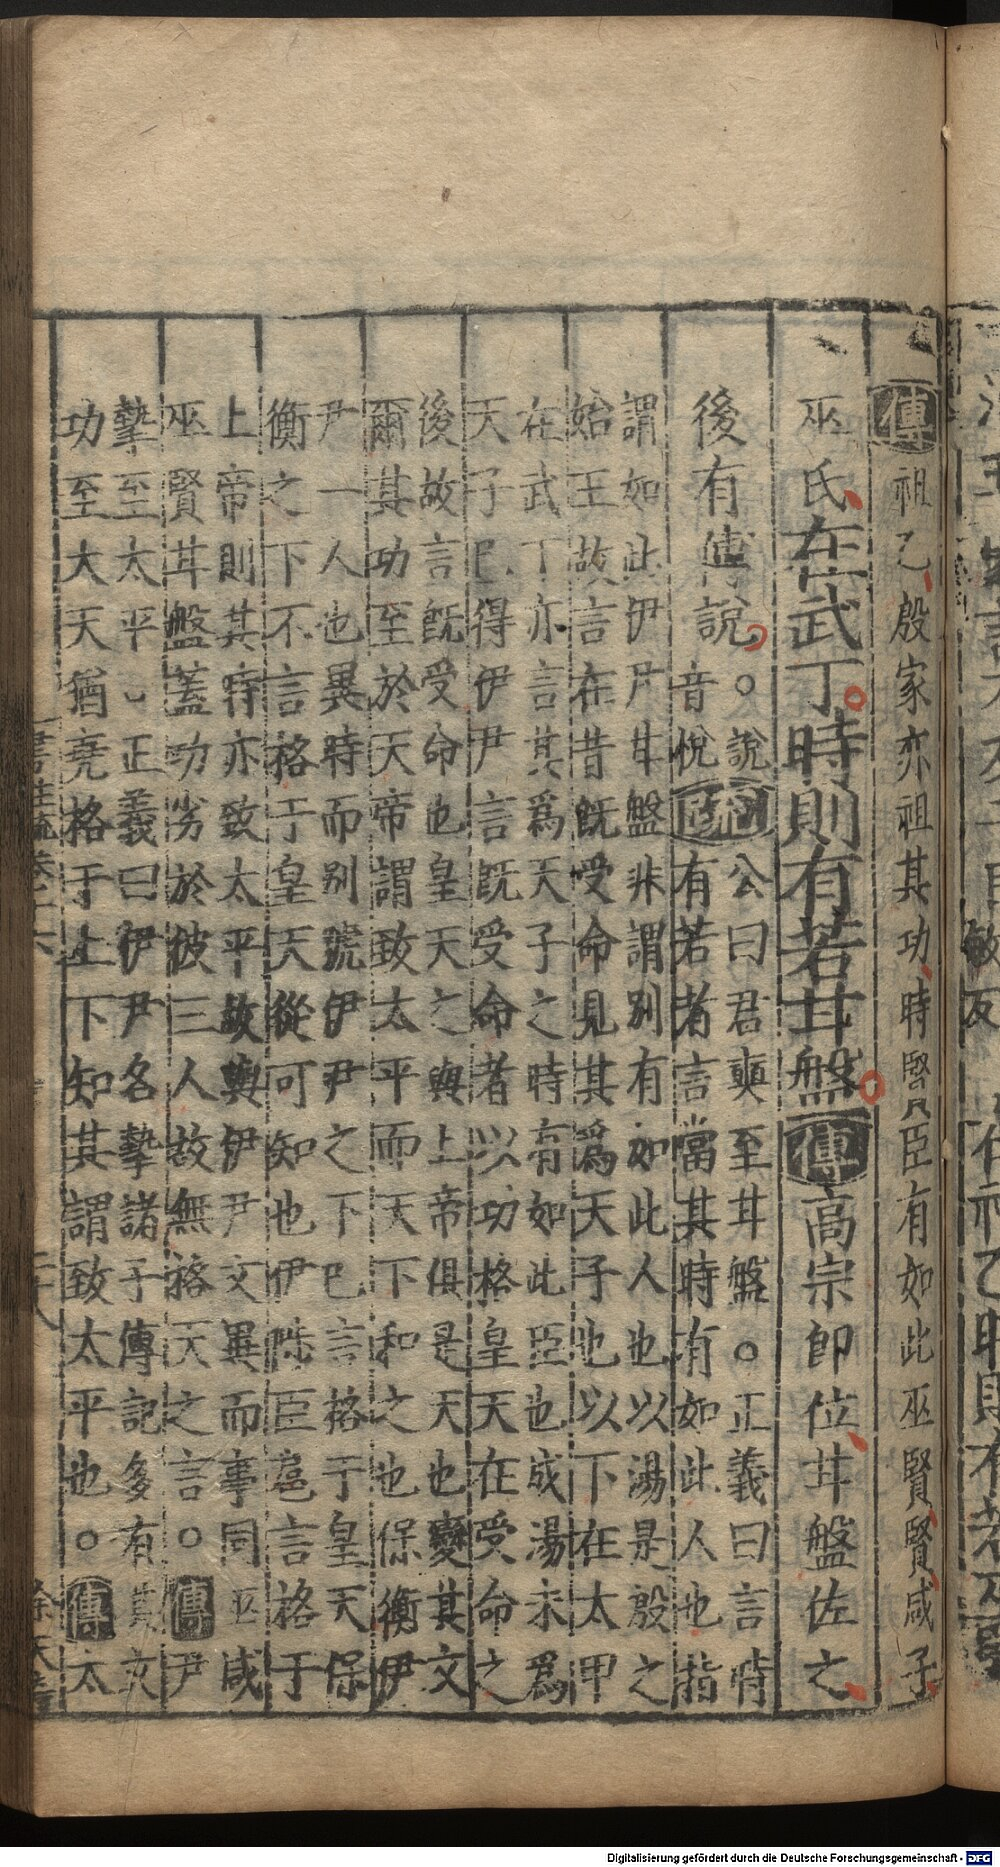 傳祖乙殷家亦祖其功時賢臣有如此巫賢賢咸子
巫氏在武丁時則有若甘盤傳高宗即位甘盤佐之
後有傳說○說
音悅疏公曰君奭至甘盤○正義曰言時
有若者言當其時有如此人也指
謂如此伊尹甘盤非謂別有如此人也以湯是殷之
始王故言在昔既受命見其為天子也以下在太甲
在武丁亦言其為天子之時有如此臣也成湯未為
天子已得伊尹言既受命者以功格皇天在受命之
後故言既受命也皇天之與上帝俱是天也變其文
爾其功至於天帝謂致太平而天下和之也保衡伊
尹一人也異時而別號伊尹之下已言格于皇天保
衡之下不言格于皇天從可知也伊陟臣扈言格于
上帝則其時亦致太平故與伊尹文異而事同巫咸
巫賢甘盤蓋功劣於彼三人故無格天之言○傳尹
摯至太平○正義曰伊尹名摯諸子傳記多有其文
功至大天猶堯格于上下知其謂致太平也○傳太
書註疏卷十六
二十八
Digitalisierung gefördert durch die Deutsche Forschungsgemeinschaft - DFG